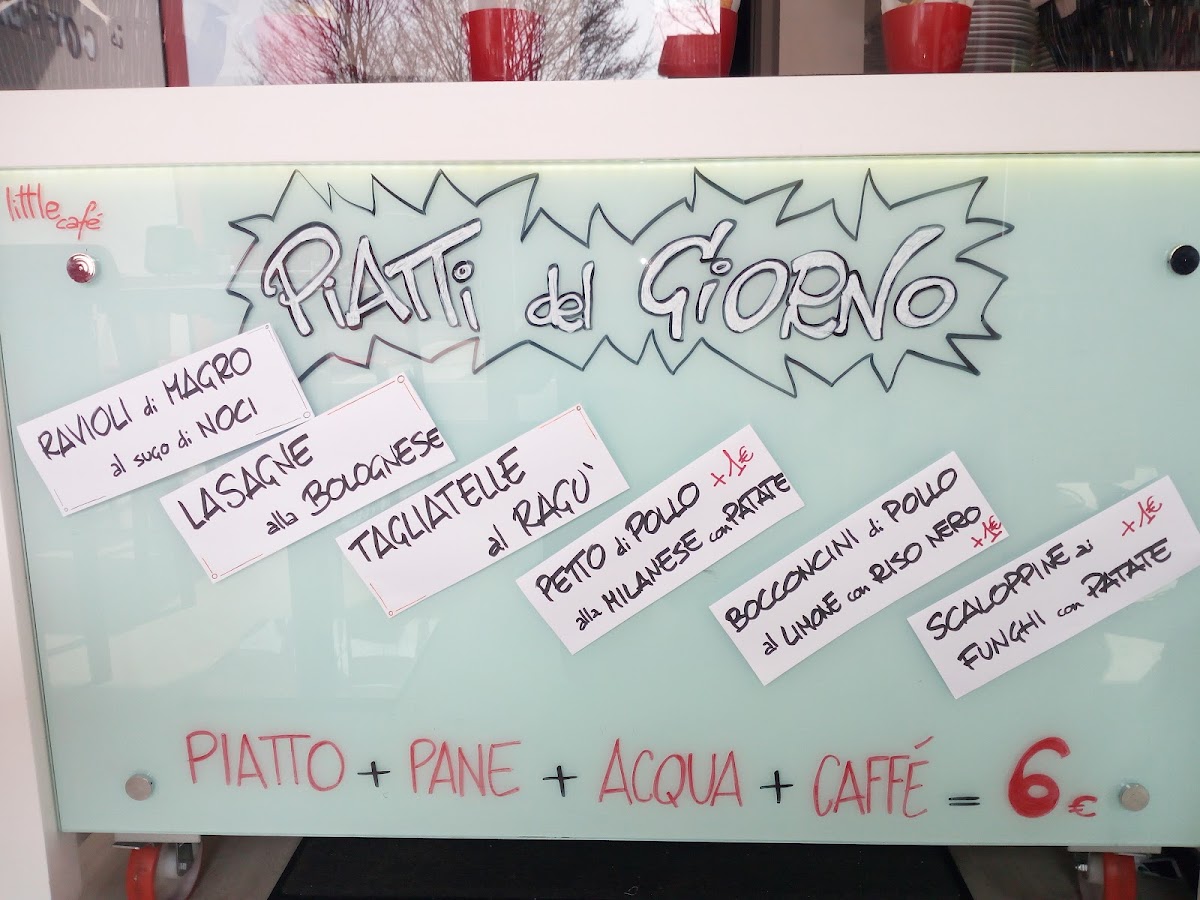 little
café
PiATTi del GiORNO
RAVIOLI di MAGRO
al sugo di NOCI
LASAGNE
alla BOLOGNESE
TAGLIATELLE
al RAGU'
PETTO di POLLO +1€
alla MILANESE con PATATE
BOCCONCINI di POLLO
al LIMONE con RISO NERO
+1€
SCALOPPINE ai +1€
FUNGHI con PATATE
PIATTO + PANE + ACQUA + CAFFÉ = 6€